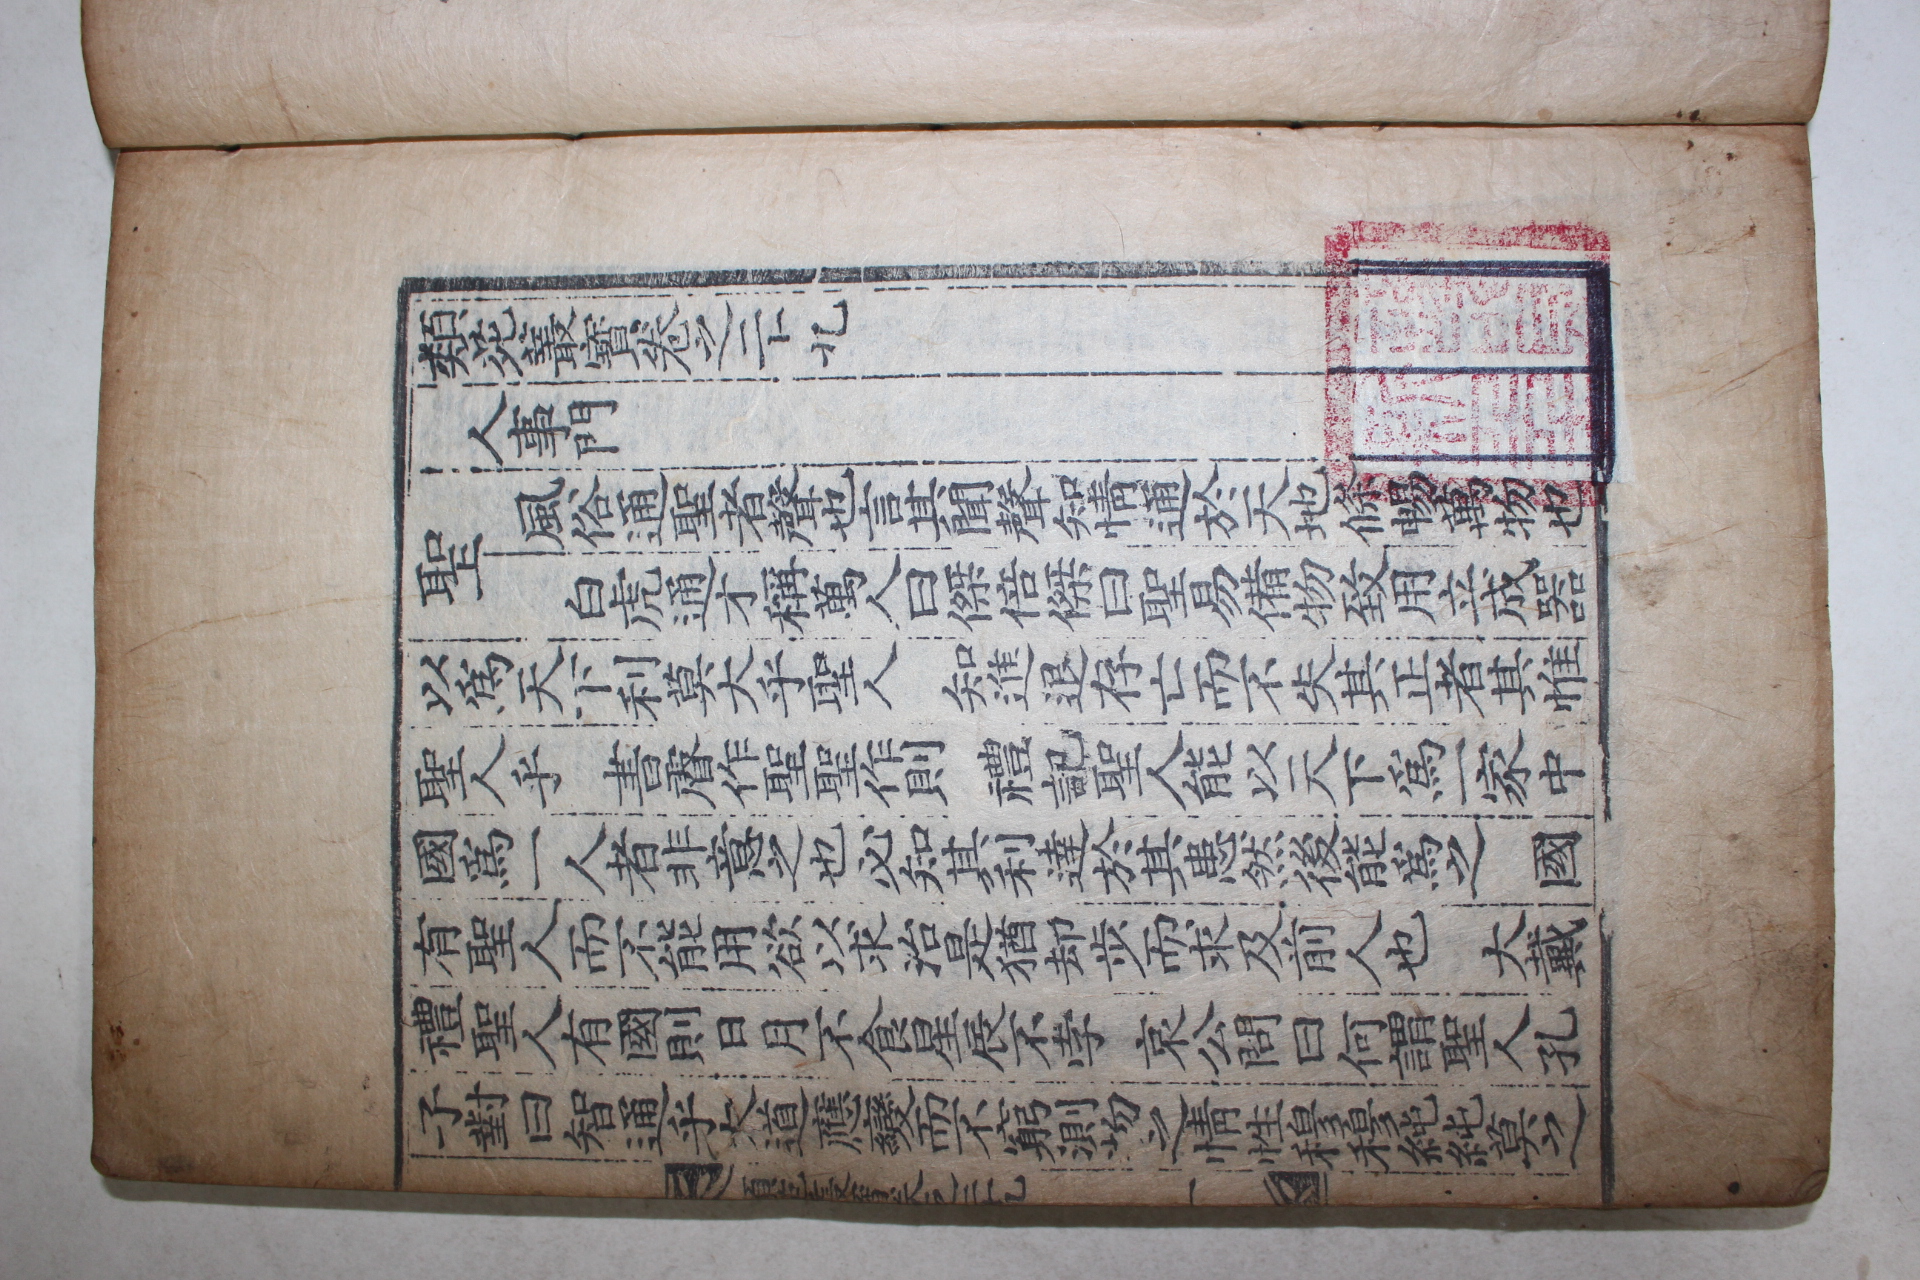 類苑叢寶卷之二十九
人事門
聖
風俗通聖者聲也言其聞聲知情通於天地條暢萬物也
白虎通才稱萬人曰傑倍傑曰聖易備物致用立成器
以爲天下利莫大乎聖人 知進退存亡而不失其正者其惟
聖人乎 書睿作聖聖作則 禮記聖人能以天下爲一家中
國爲一人者非意之也必知其利達於其患然後能爲之 國
有聖人而不能用欲以求治是猶却步而求及前人也 大戴
禮聖人有國則日月不食星辰不孛 哀公問曰何謂聖人孔
子對曰智通乎大道應變而不窮測物之情性穆穆純純莫之
類苑叢寶卷之二十九
一